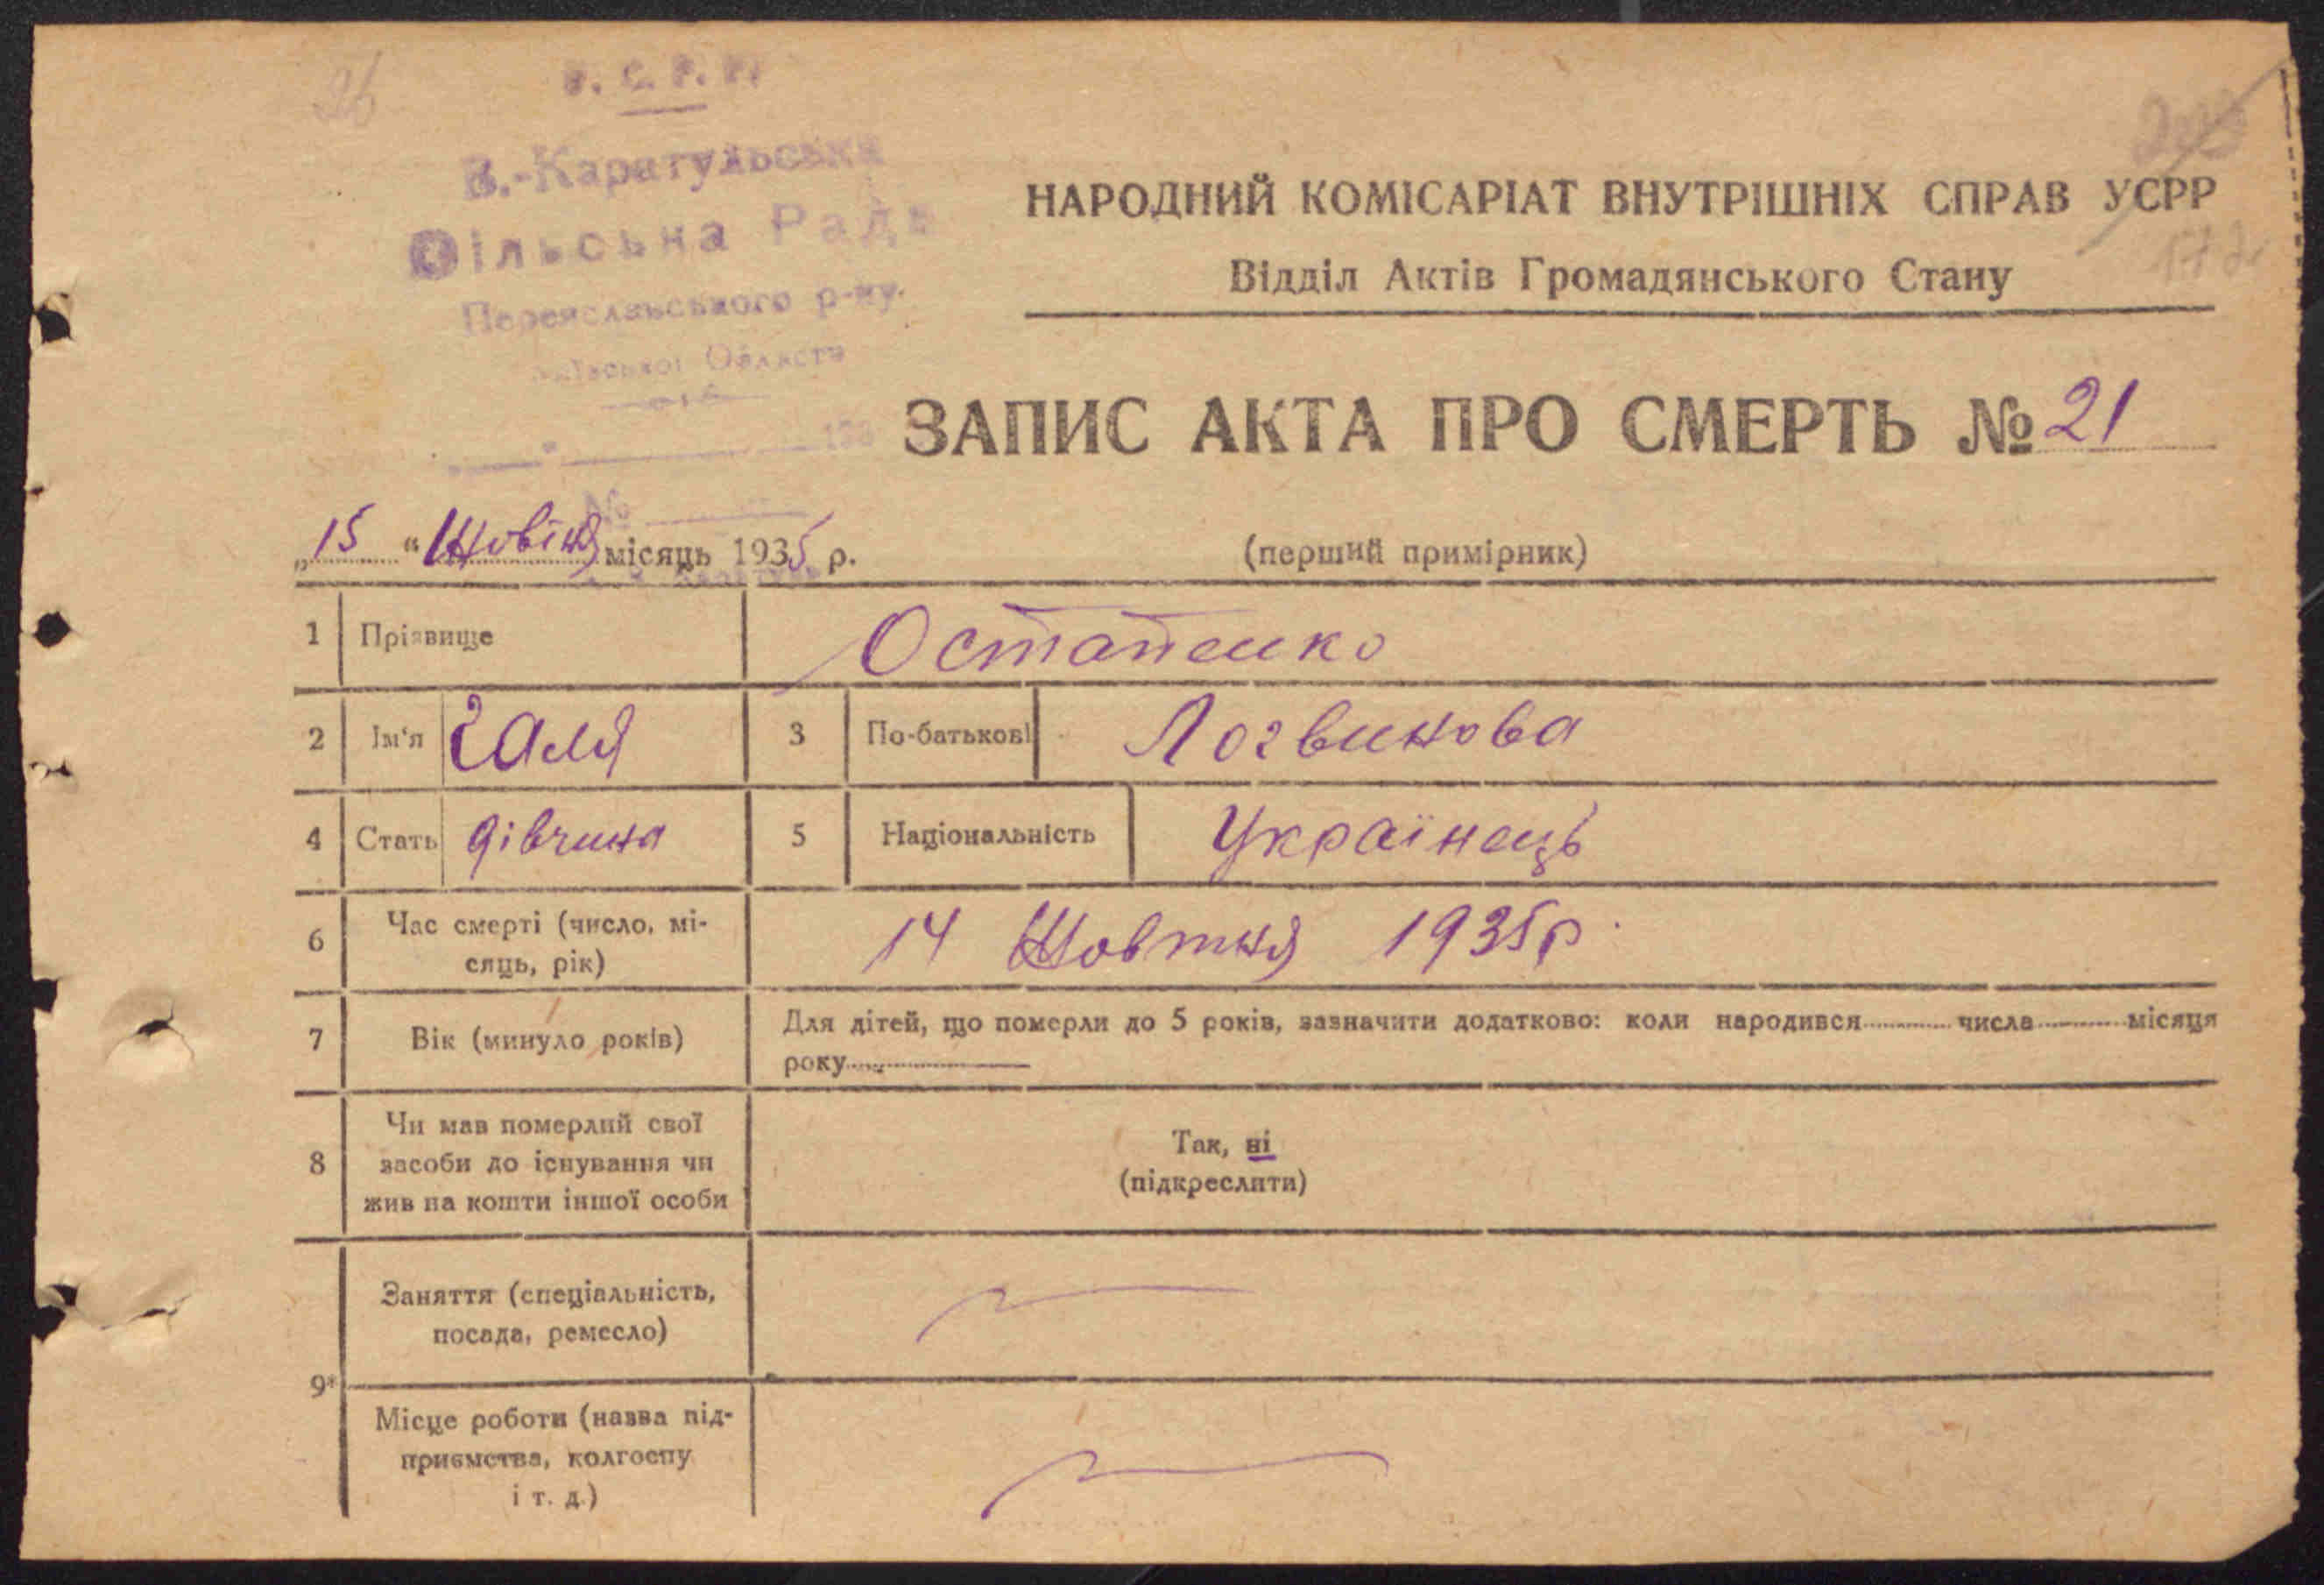 26
У. С. Р. Р.
В.-Каратульська
Сільська Рада
Переяславського р-ну.
Київської Області
193
№
НАРОДНИЙ КОМІСАРІАТ ВНУТРІШНІХ СПРАВ УСРР
Відділ Актів Громадянського Стану
ЗАПИС АКТА ПРО СМЕРТЬ № 21
„15“ Жовтня місяць 1935 р.
(перший примірник)
1 Прізвище Остапенко
2 Ім'я Галя 3 По-батькові Логвинова
4 Стать дівчина 5 Національність Українець
6 Час смерті (число, мі-
сяць, рік) 14 Жовтня 1935 р.
7 Вік (минуло років) Для дітей, що померли до 5 років, зазначити додатково: коли народився числа місяця
року
8 Чи мав померлий свої
засоби до існування чи
жив на кошти іншої особи
Так, ні
(підкреслити)
9* Заняття (спеціальність,
посада, ремесло)
Місце роботи (назва під-
приємства, колгоспу
і т. д.)